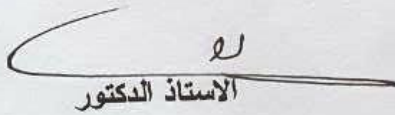 الاستاذ الدكتور